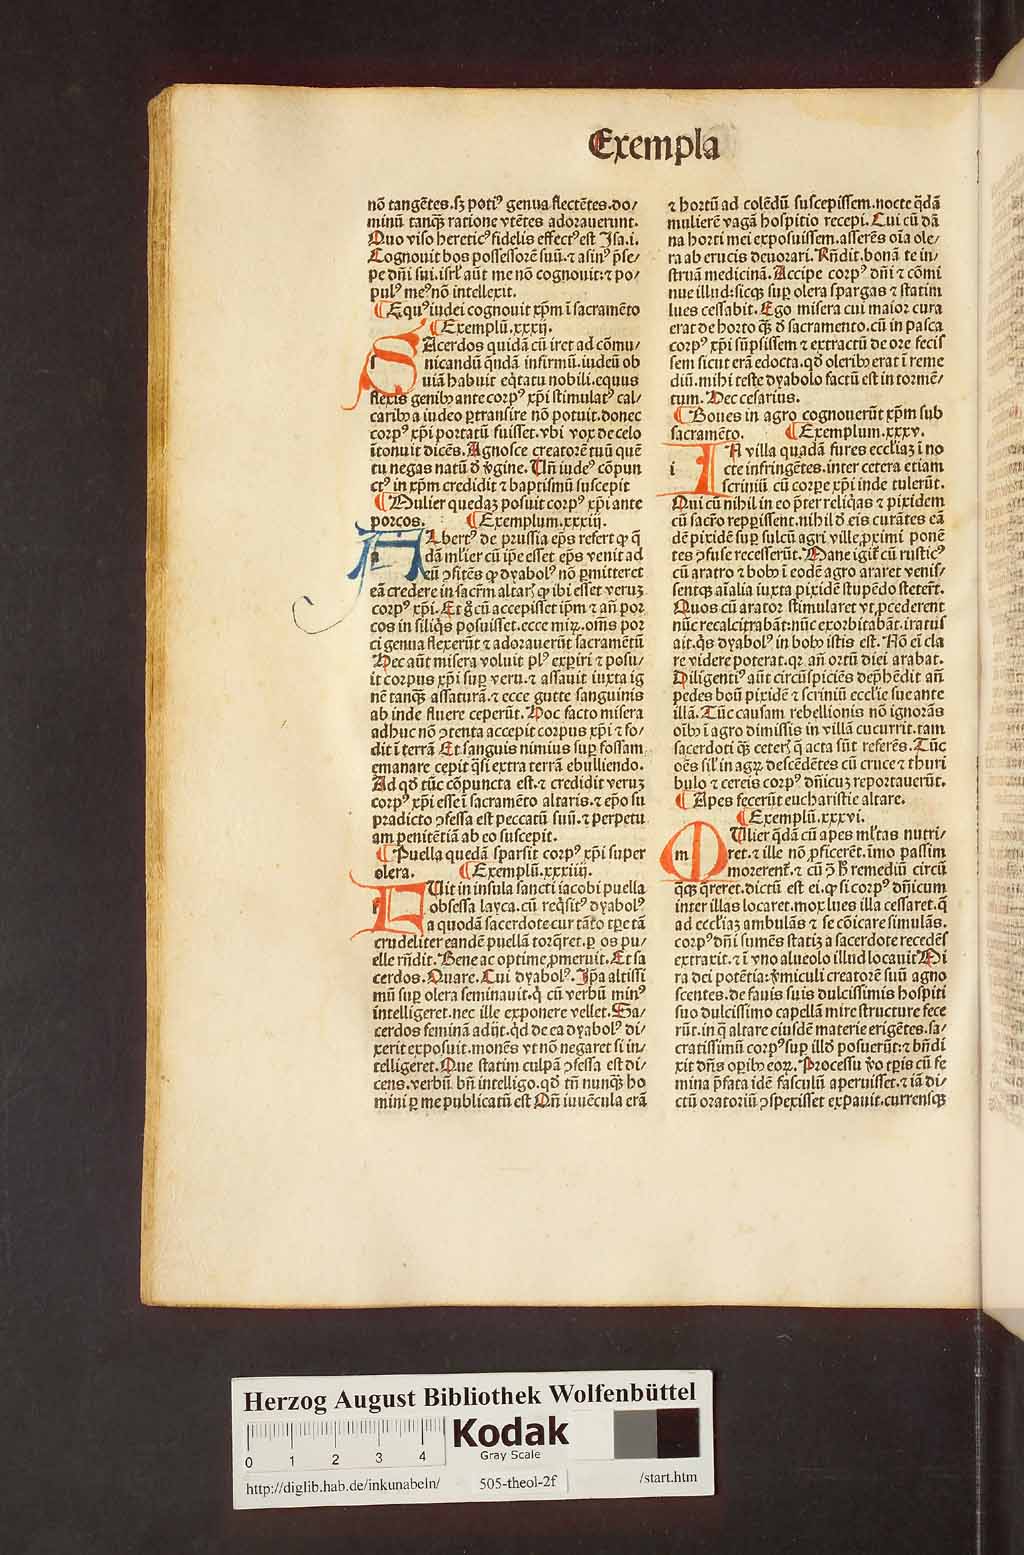 Exempla
nō tangētes.sꝫ potiꝰ genua flectētes.do/
minū tanqꝫ ratione vtētes adorauerunt.
Quo viso hereticꝰ fidelis effectꝰ est Isa.i.
Cognouit bos possessorē suū.⁊ asinꝰ p̄se/
pe dn̄i sui.isrl̓ aūt me nō cognouit:⁊ po/
pulꝰ meꝰ nō intellexit.
¶ Equꝰ iudei cognouit xp̄m ī sacramēto
¶ Exemplū.xxxij.
SAcerdos quidā cū iret ad cōmu/
nicandū q̄ndā infirmū.iudeū ob
uiā habuit eq̇tatu nobili.equus
flexis genibꝫ ante corpꝰ xp̄i stimulatꝰ cal/
caribꝫ a iudeo ꝑtransire nō potuit.donec
corpꝰ xp̄i portatū fuisset.vbi vox de celo
ītonuit dicēs.Agnosce creatorē tuū quē
tu negas natū ď v̓gine. Vn̄ iudeꝰ cōpun
ctꝰ in xp̄m credidit ⁊ baptismū suscepit
¶ Mulier quedaꝫ posuit corpꝰ xp̄i ante
porcos. ¶ Exemplum.xxxiij.
ALbertꝰ de prussia ep̄s refert ꝙ q̄
dā ml̓ier cū ip̄e esset ep̄s venit ad
eū ꝯfitēs ꝙ dyabolꝰ nō ꝑmitteret
eā credere in sacrm̄ altarꝭ ꝙ ibi esset veruꝫ
corpꝰ xp̄i. Et g̊ cū accepisset ip̄m ⁊ an̄ por
cos in siliq̇s posuisset.ecce mirꝫ.om̄s por
ci genua flexerūt ⁊ adorauerūt sacramētū
Hec aūt misera voluit plꝰ exꝑiri ⁊ posu/
it corpus xp̄i suꝑ veru.⁊ assauit iuxta ig
nē tanqꝫ assaturā.⁊ ecce gutte sanguinis
ab inde fluere ceperūt. Hoc facto misera
adhuc nō ꝯtenta accepit corpus xp̄i ⁊ fo/
dit ī terrā Et sanguis nimius suꝑ fossam
emanare cepit q̄si extra terrā ebulliendo.
Ad qd̓ tūc cōpuncta est.⁊ credidit veruꝫ
corpꝰ xp̄i esse ī sacramēto altaris.⁊ ep̄o su
pradicto ꝯfessa est peccatū suū.⁊ perpetu
am penitētiā ab eo suscepit.
¶ Puella quedā sparsit corpꝰ xp̄i super
olera. ¶ Exemplū.xxxiiij.
FUit in insula sancti iacobi puella
obsessa layca.cū req̇sitꝰ dyabolꝰ
a quodā sacerdote cur tāto tp̄e tā
crudeliter eandē puellā torq̄ret.ꝑ os pu/
elle rn̄dit. Bene ac optime ꝓmeruit. Et sa
cerdos. Quare. Cui dyabolꝰ. Ip̄a altissi
mū suꝑ olera seminauit.q̇ cū verbū minꝰ
intelligeret.nec ille exponere vellet. Sa/
cerdos feminā adijt.qd̓ de ea dyabolꝰ di/
xerit exposuit.monēs vt nō negaret si in/
telligeret. Que statim culpā ꝯfessa est di/
cens.verbū bn̄ intelligo.qd̓ tn̄ nunqꝫ ho
mini ꝑ me publicatū est Qn̄ iuuēcula erā
⁊ hortū ad colēdū suscepissem.nocte q̄dā
mulierē vagā hospitio recepi. Cui cū dā
na horti mei exposuissem.asserēs oīa ole/
ra ab erucis deuorari. Rn̄dit.bonā te in/
struā medicinā. Accipe corpꝰ dn̄i ⁊ cōmi
nue illud:sicqꝫ suꝑ olera spargas ⁊ statim
lues cessabit. Ego misera cui maior cura
erat de horto qꝫ ď sacramento.cū in pasca
corpꝰ xp̄i sūpsissem ⁊ extractū de ore fecis
sem sicut erā edocta.qd̓ oleribꝫ erat ī reme
diū.mihi teste dyabolo factū est in tormē/
tum. Hec cesarius.
¶ Boues in agro cognouerūt xp̄m sub
sacramēto. ¶ Exemplum.xxxv.
IN villa quadā fures eccl̓iaꝫ ī no
cte infringētes.inter cetera etiam
scriniū cū corꝑe xp̄i inde tulerūt.
Qui cū nihil in eo p̄ter reliq̇as ⁊ pixidem
cū sacr̄o repꝑissent.nihil ď eis curātes eā
dē pixidē suꝑ sulcū agri ville ꝓximi ponē
tes ꝯfuse recesserūt. Mane igit̓ cū rusticꝰ
cū aratro ⁊ bobꝫ ī eodē agro araret venis/
sentqꝫ aīalia iuxta pixidē stupēdo stetert̄.
Quos cū arator stimularet vt ꝓcederent
nūc recalcitrabāt:nūc exorbitabāt.iratus
ait.qꝫ dyabolꝰ in bobꝫ istis est. Nō eī cla
re videre poterat.qꝛ an̄ ortū diei arabat.
Diligentiꝰ aūt circūspiciēs dep̄hēdit an̄
pedes boū pixidē ⁊ scriniū eccl̓ie sue ante
illā. Tūc causam rebellionis nō ignorās
oībꝫ ī agro dimissis in villā cucurrit.tam
sacerdoti qꝫ ceterꝭ q̄ acta sūt referēs. Tūc
oēs sil̓ in agrꝫ descēdētes cū cruce ⁊ thuri
bulo ⁊ cereis corpꝰ dn̄icuꝫ reportauerūt.
¶ Apes fecerūt eucharistie altare.
¶ Exemplū.xxxvi.
MUlier q̄dā cū apes ml̓tas nutri/
ret.⁊ ille nō ꝓficerēt.īmo passim
morerent̓.⁊ cū ꝯ hͦ remediū circū
q̄qꝫ q̄reret.dictū est ei.ꝙ si corpꝰ dn̄icum
inter illas locaret.mox lues illa cessaret.q̄
ad eccl̓iaꝫ ambulās ⁊ se cōicare simulās.
corpꝰ dn̄i sumēs statiꝫ a sacerdote recedēs
extraxit.⁊ ī vno alueolo illud locauit Mi
ra dei potētia:v̓miculi creatorē suū agno
scentes.de fauis suis dulcissimis hospiti
suo dulcissimo capellā mire structure fece
rūt.in q̄ altare eiusdē materie erigētes.sa/
cratissimū corpꝰ suꝑ illď posuerūt:⁊ bn̄di
xit dn̄s oꝑibꝫ eoꝝ. Processu v̊o tꝑis cū fe
mina p̄fata idē fasculū aperuisset.⁊ iā di/
ctū oratoriū ꝯspexisset expauit.currensqꝫ
Herzog August Bibliothek Wolfenbüttel
Kodak
Gray Scale
0 1 2 3 4
http://diglib.hab.de/inkunabeln/ 505-theol-2f /start.htm